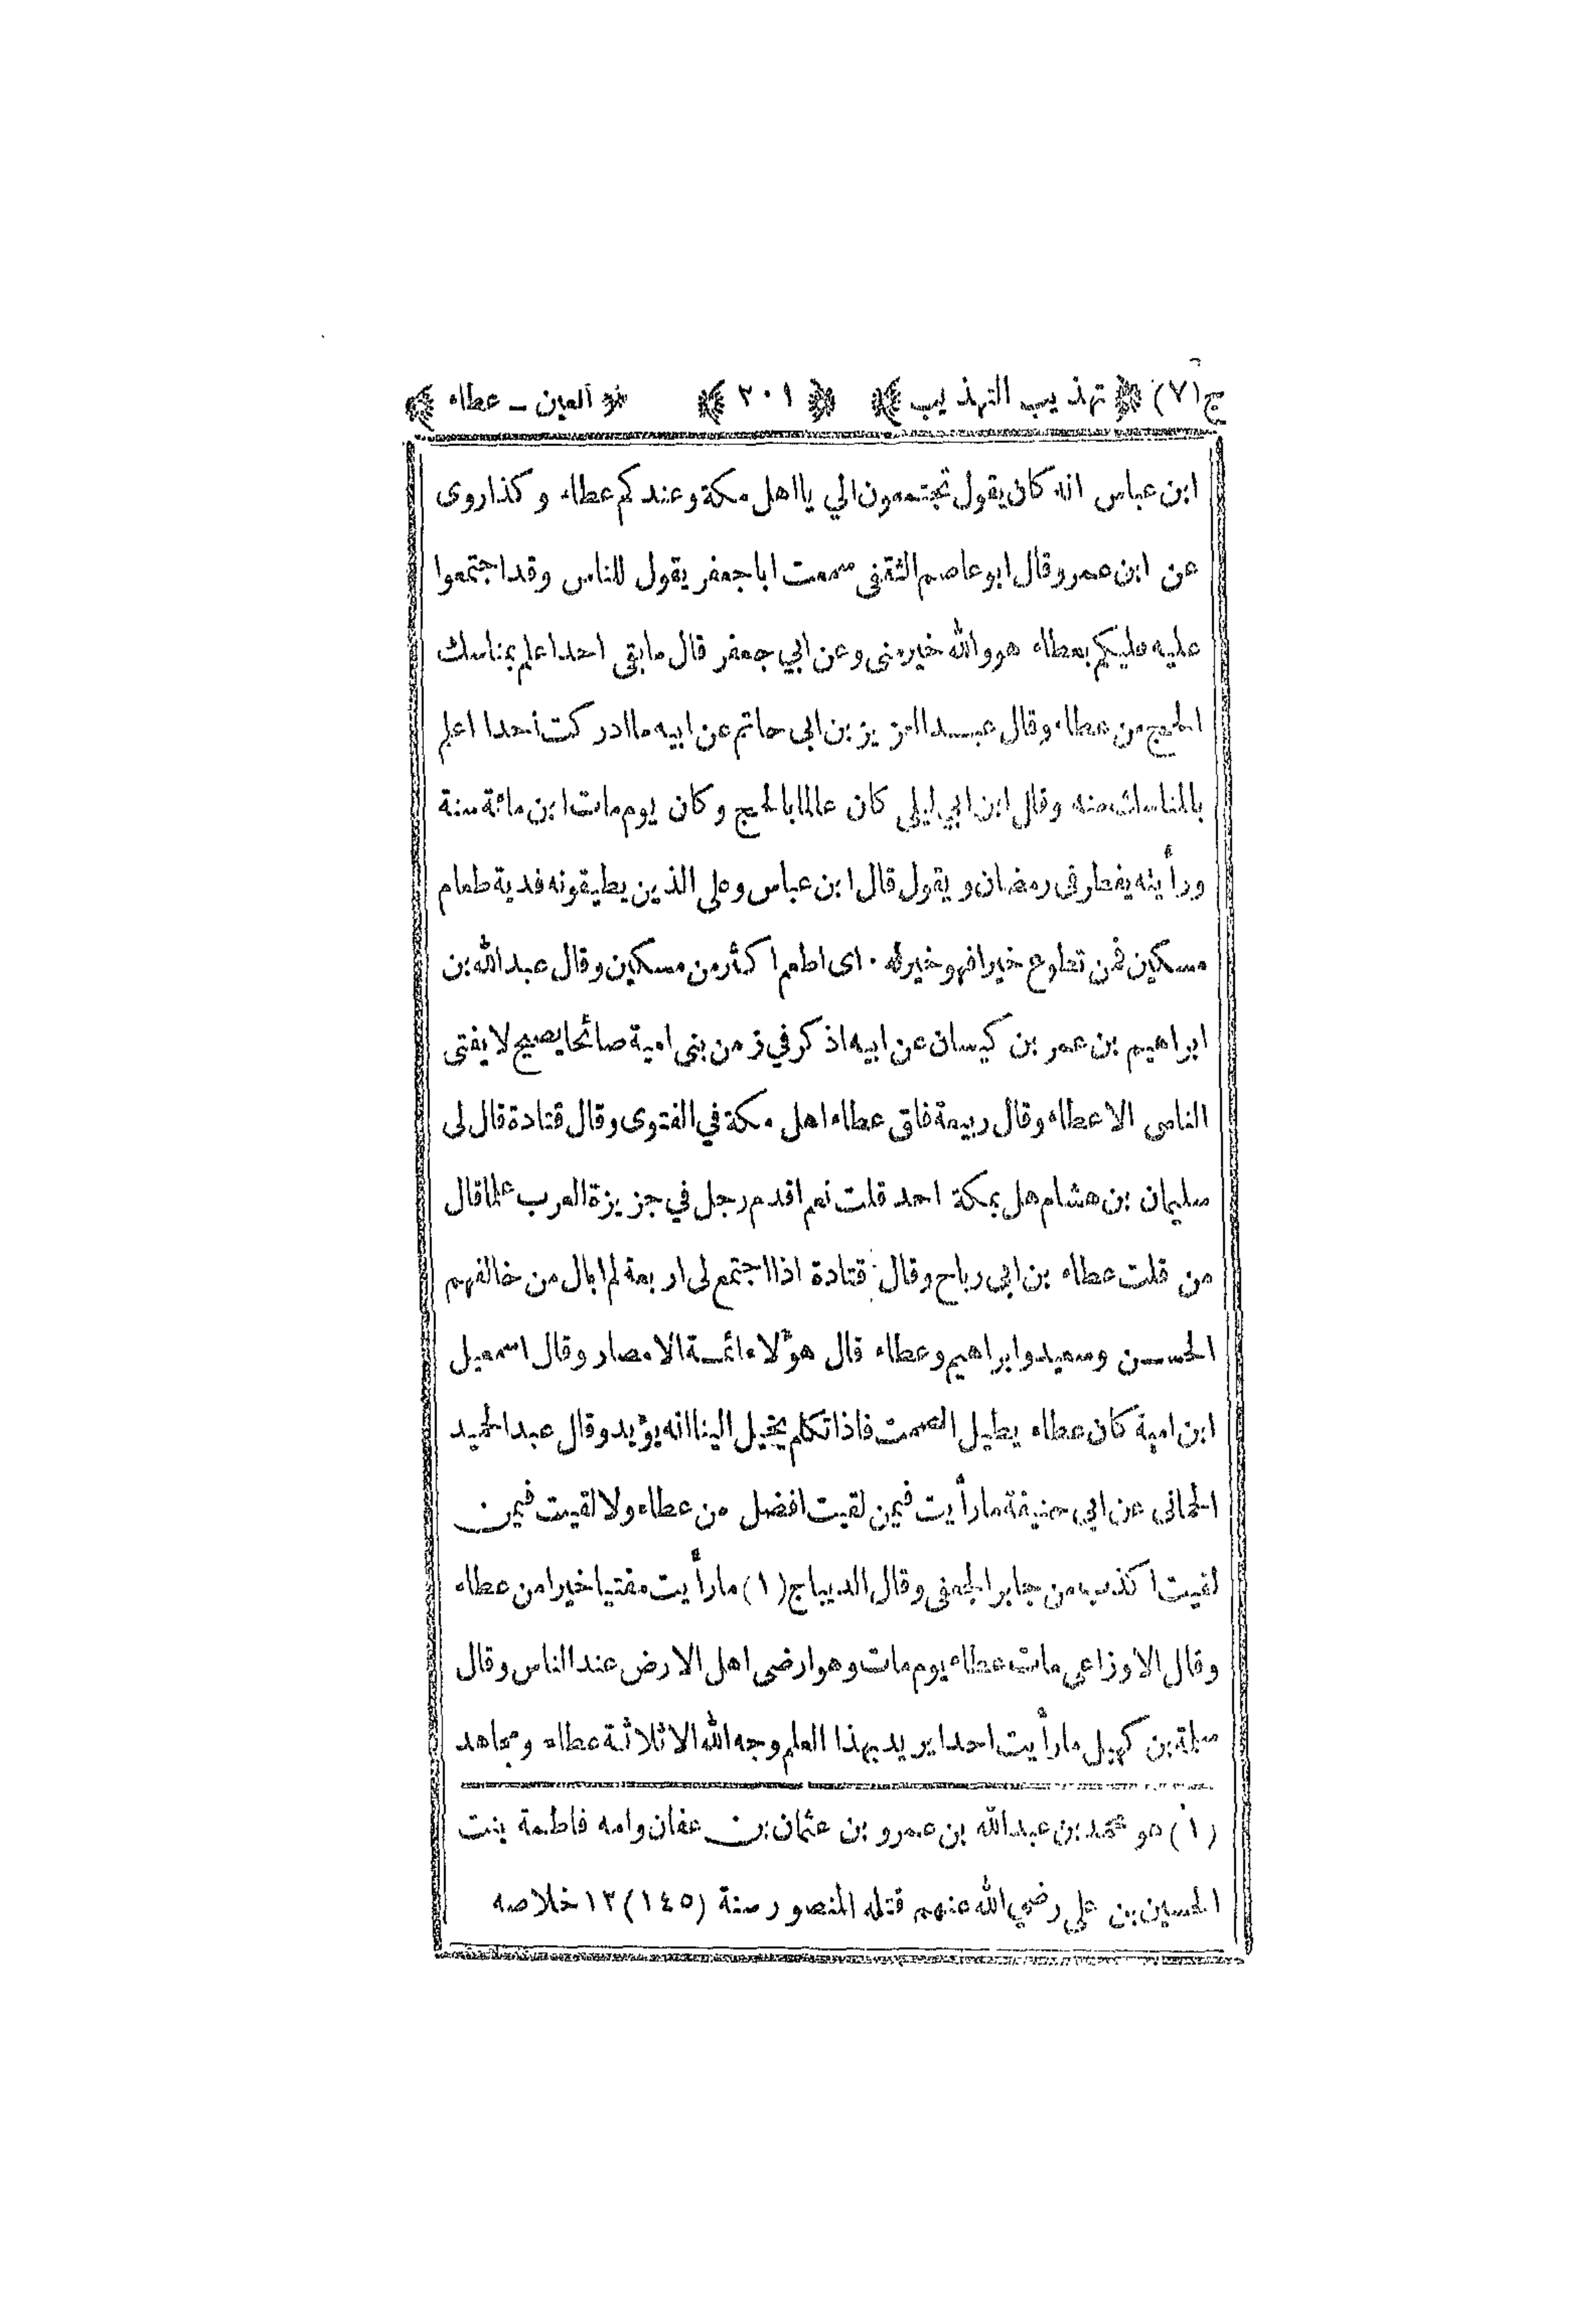 ج(٧) ﴿ تهذيب التهذيب ﴾ ﴿ ٢٠١ ﴾ ﴿ العين ـ عطاء ﴾
ابن عباس انه كان يقول تجتمعون الي يا اهل مكة وعندكم عطاء وكذا روى
عن ابن عمر وقال ابو عاصم الثقفى سمعت ابا جعفر يقول للناس وقد اجتمعوا
عليه عليكم بعطاء هو والله خير منى وعن ابي جعفر قال ما بقى احد اعلم بمناسك
الحج من عطاء وقال عبد العزيز بن ابى حاتم عن ابيه ما ادركت احدا اعلم
بالمناسك منه وقال ابن ابي ليلى كان عالما بالحج وكان يوم مات ابن مائة سنة
ورأيته يفطر فى رمضان ويقول قال ابن عباس وعلى الذين يطيقونه فدية طعام
مسكين فمن تطوع خيرا فهو خير له ٠ اى اطعم اكثر من مسكين وقال عبد الله بن
ابراهيم بن عمر بن كيسان عن ابيه اذكر في زمن بنى امية صائحا يصيح لا يفتى
الناس الا عطاء وقال ربيعة فاق عطاء اهل مكة في الفتوى وقال قتادة قال لى
سليمان بن هشام هل بمكة احد قلت نعم اقدم رجل في جزيرة العرب علما قال
من قلت عطاء بن ابى رباح وقال قتادة اذا اجتمع لى اربعة لم ابال من خالفهم
الحسن وسعيد وابراهيم وعطاء قال هؤلاء ائمة الامصار وقال اسمعيل
ابن امية كان عطاء يطيل الصمت فاذا تكلم يخيل الينا انه يؤيد وقال عبد الحميد
الحمانى عن ابي حنيفة ما رأيت فيمن لقيت افضل من عطاء ولا لقيت فيمن
لقيت اكذب من جابر الجعفى وقال الديباج (١) ما رأيت مفتيا خيرا من عطاء
وقال الاوزاعى مات عطاء يوم مات وهو ارضى اهل الارض عند الناس وقال
سلمة بن كهيل ما رأيت احدا يريد بهذا العلم وجه الله الا ثلاثة عطاء ومجاهد
(١) هو محمد بن عبد الله بن عمرو بن عثمان بن عفان وامه فاطمة بنت
الحسين بن على رضي الله عنهم قتله المنصور سنة (١٤٥) ١٢ خلاصه